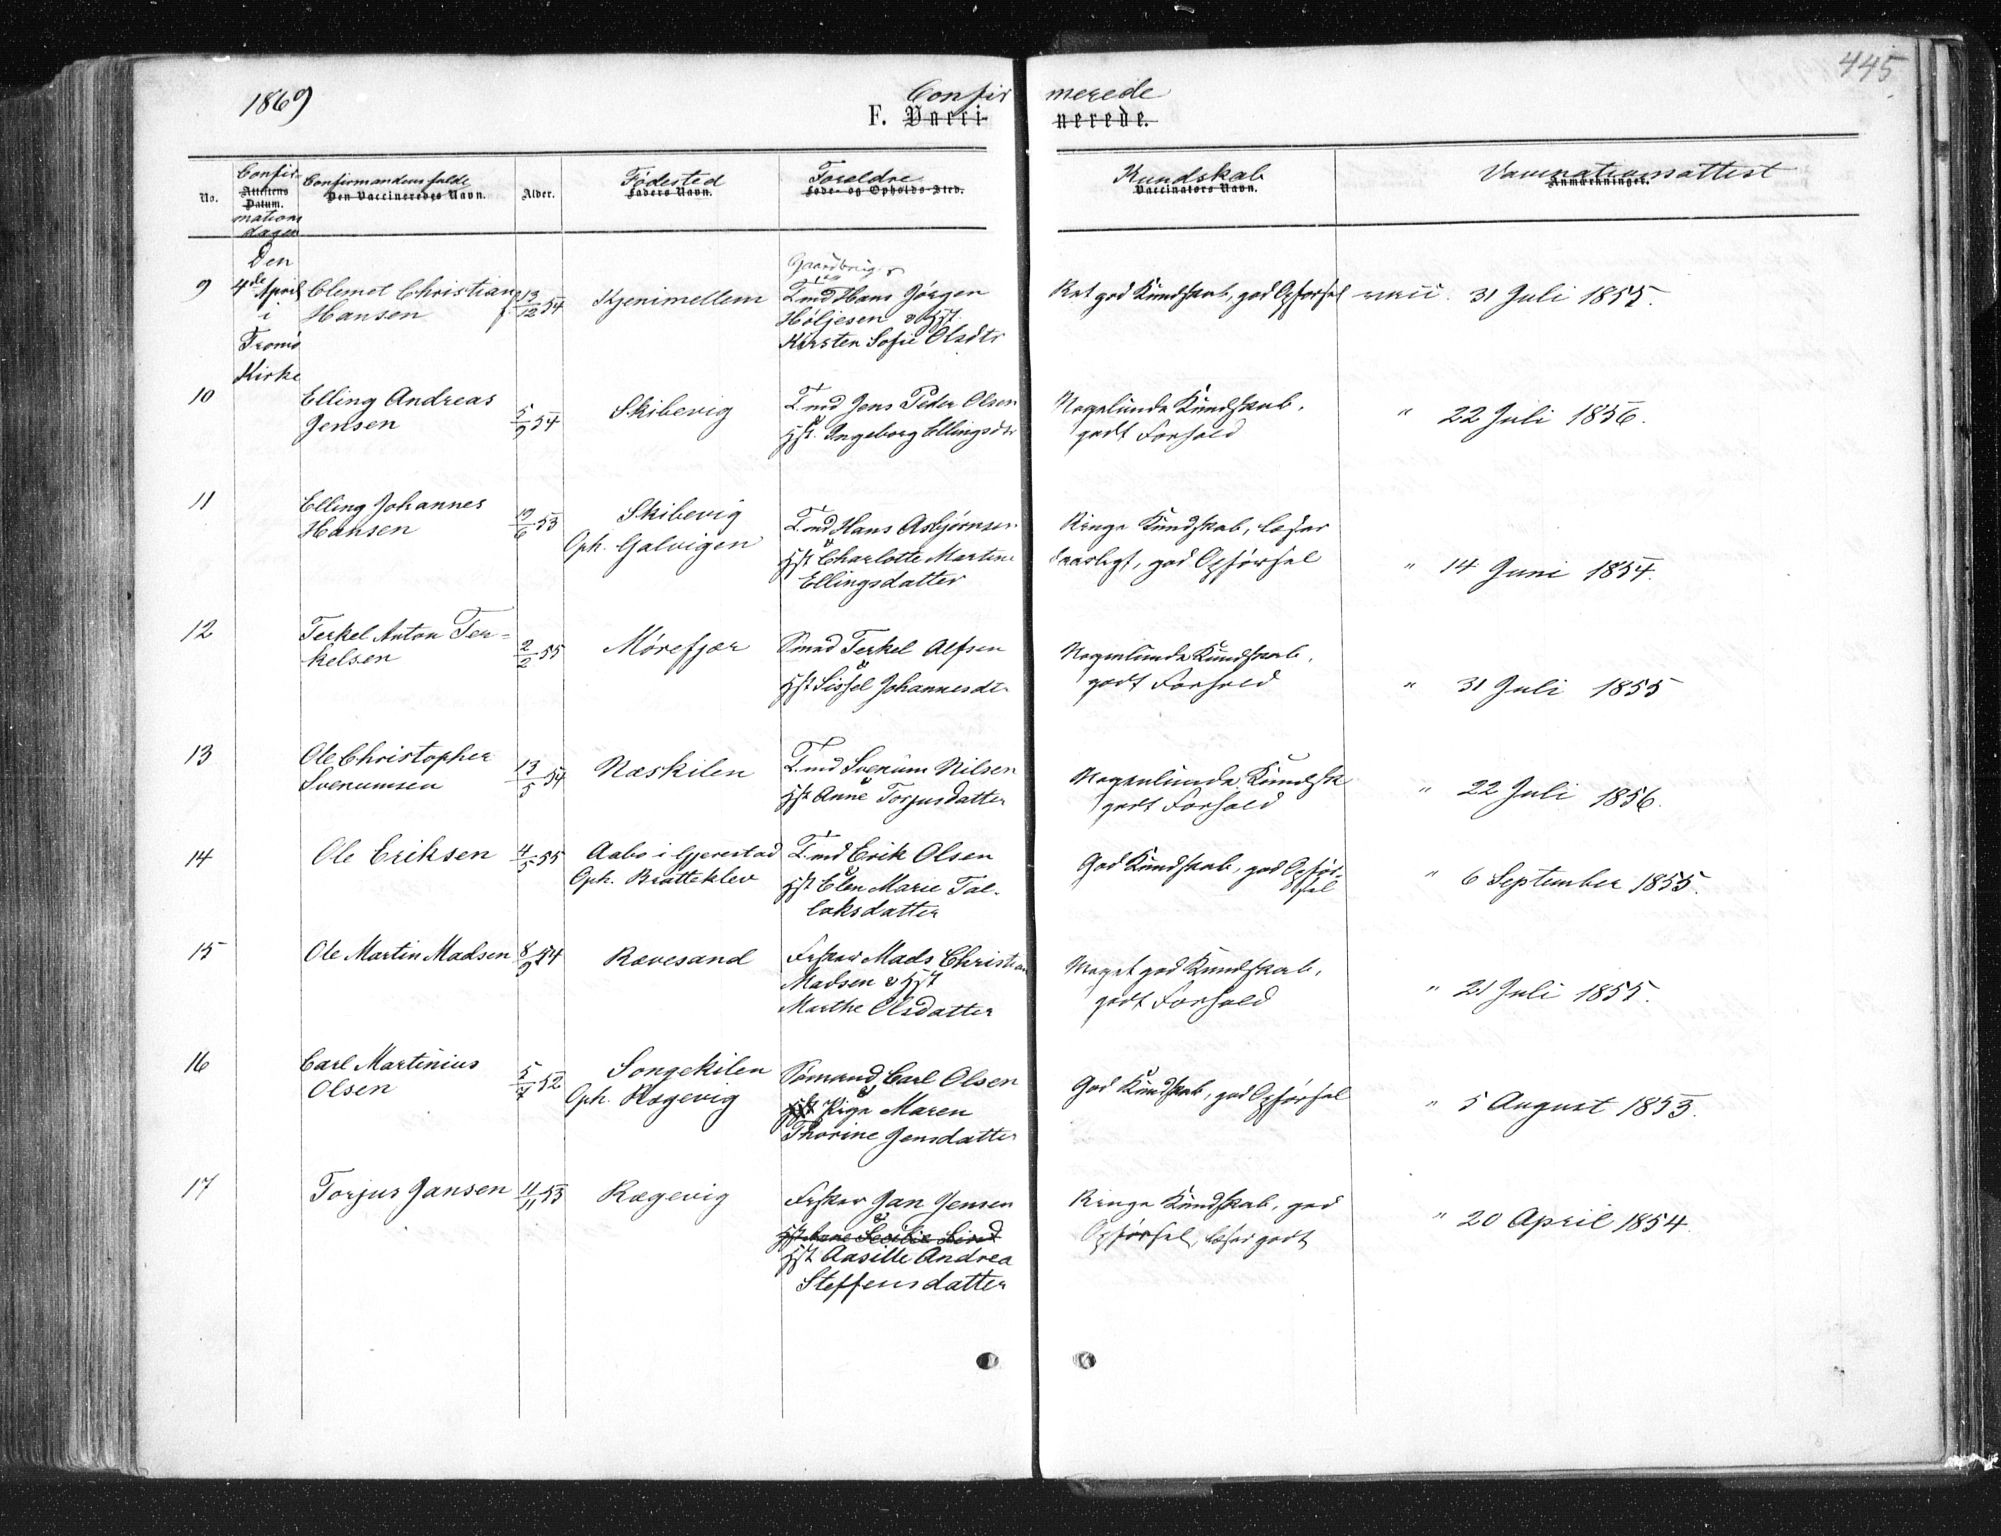 445.
1869
Confirmerede
F. Vaccinerede.
No.
Confirmationsdagen
Attestens Datum.
Confirmandens fulde
Den Vaccineredes Navn.
Alder.
Födested
Faders Navn.
Forældre
Føde- og Opholds-Sted.
Kundskab
Vaccinators Navn.
Vaccinationsattest
Anmærkninger.
Den 4de April i Tromø Kirke
9 Clemet Christian Hansen f. 13/12 54 Kjenimellem
Gaardbruger
Hans Jörgen
Höljesen & Hst.
Kirsten Sofie Olsdtr
Ret god Kundskab, god Opførsel 31 Juli 1855.
10 Elling Andreas Jensen 5/9 54 Skibevig
Jens Peder Olsen
& Hst. Ingeborg Ellingsdtr
Nogenlunde Kundskab,
godt Forhold
" 22 Juli 1856.
11 Elling Johannes Hansen 19/6 53 Skibevig
Oph. Galvigen
Hans Asbjörnsen
& Hst Charlotte Martine
Ellingsdatter
Ringe Kundskab, læser
daarligt, god Opførsel
" 14 Juni 1854.
12 Terkel Anton Terkelsen 2/2 55 Mörefjær
Sömd Terkel Alfsen
& Hst Sissel Johannesdtr
Nogenlunde Kundskab,
godt Forhold
" 31 Juli 1855
13 Ole Christopher Svenumsen 13/5 54 Næskilen
Svenum Nilsen
& Hst Anne Torjusdatter
Nogenlunde Kundsk
godt Forhold
" 22 Juli 1856.
14 Ole Eriksen 4/5 55 Aabo i Gjerestad
Oph. Bratteklev
Erik Olsen
& Hst Elen Marie Tallaksdatter
God Kundskab, god Opførsel
" 6 September 1855.
15 Ole Martin Madsen 8/9 54 Rævesand
Fisker Mads Christian
Madsen & Hst
Marthe Olsdatter
Meget god Kundskab,
godt Forhold
" 21 Juli 1855.
16 Carl Martinius Olsen 5/7 52 Songekilen
Oph. Rægevig
Sömand Carl Olsen
& Pige Maren
Thorine Jensdatter
God Kundskab, god Opførsel
" 5 August 1853.
17 Torjus Jansen 11/11 53 Rægevig
Fisker Jan Jensen
&
Hst Aasille Andrea
Steffensdatter
Ringe Kundskab, god
Opførsel, læser godt
" 20 April 1854.